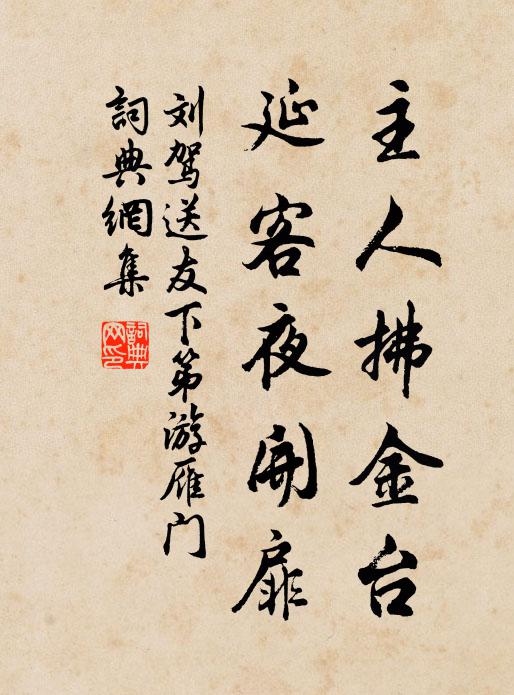 主人拂金台
延客夜開扉
刘驾送友下第游雁门
詞典網集
詞典
网印